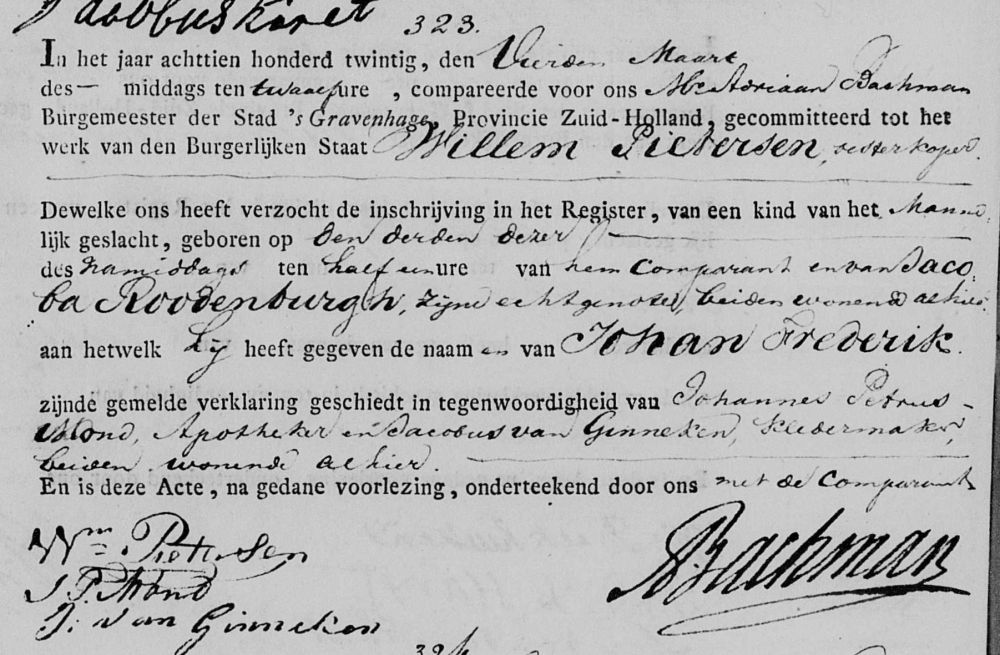 Jacobus Karet
323.
In het jaar achttien honderd twintig, den Vierden Maart
des — middags ten twaalf ure, compareerde voor ons Mr. Adriaan Bachman
Burgemeester der Stad 's Gravenhage, Provincie Zuid-Holland, gecommitteerd tot het
werk van den Burgerlijken Staat Willem Pietersen,
Dewelke ons heeft verzocht de inschrijving in het Register, van een kind van het Manne
lijk geslacht, geboren op den derden dezer
des namiddags ten half een ure van hem Comparant en van Jaco
ba Roodenburgh, zijne echtgenote, beiden wonende alhier
aan hetwelk hij heeft gegeven de naam en van Johan Frederik.
zijnde gemelde verklaring geschiedt in tegenwoordigheid van Johannes Petrus
Mond, Apotheker en Jacobus van Ginneken, Kledermaker,
beiden wonende alhier.
En is deze Acte, na gedane voorlezing, onderteekend door ons met de Comparant
Wm Pietersen
J P Mond
J. van Ginneken
ABachman
324